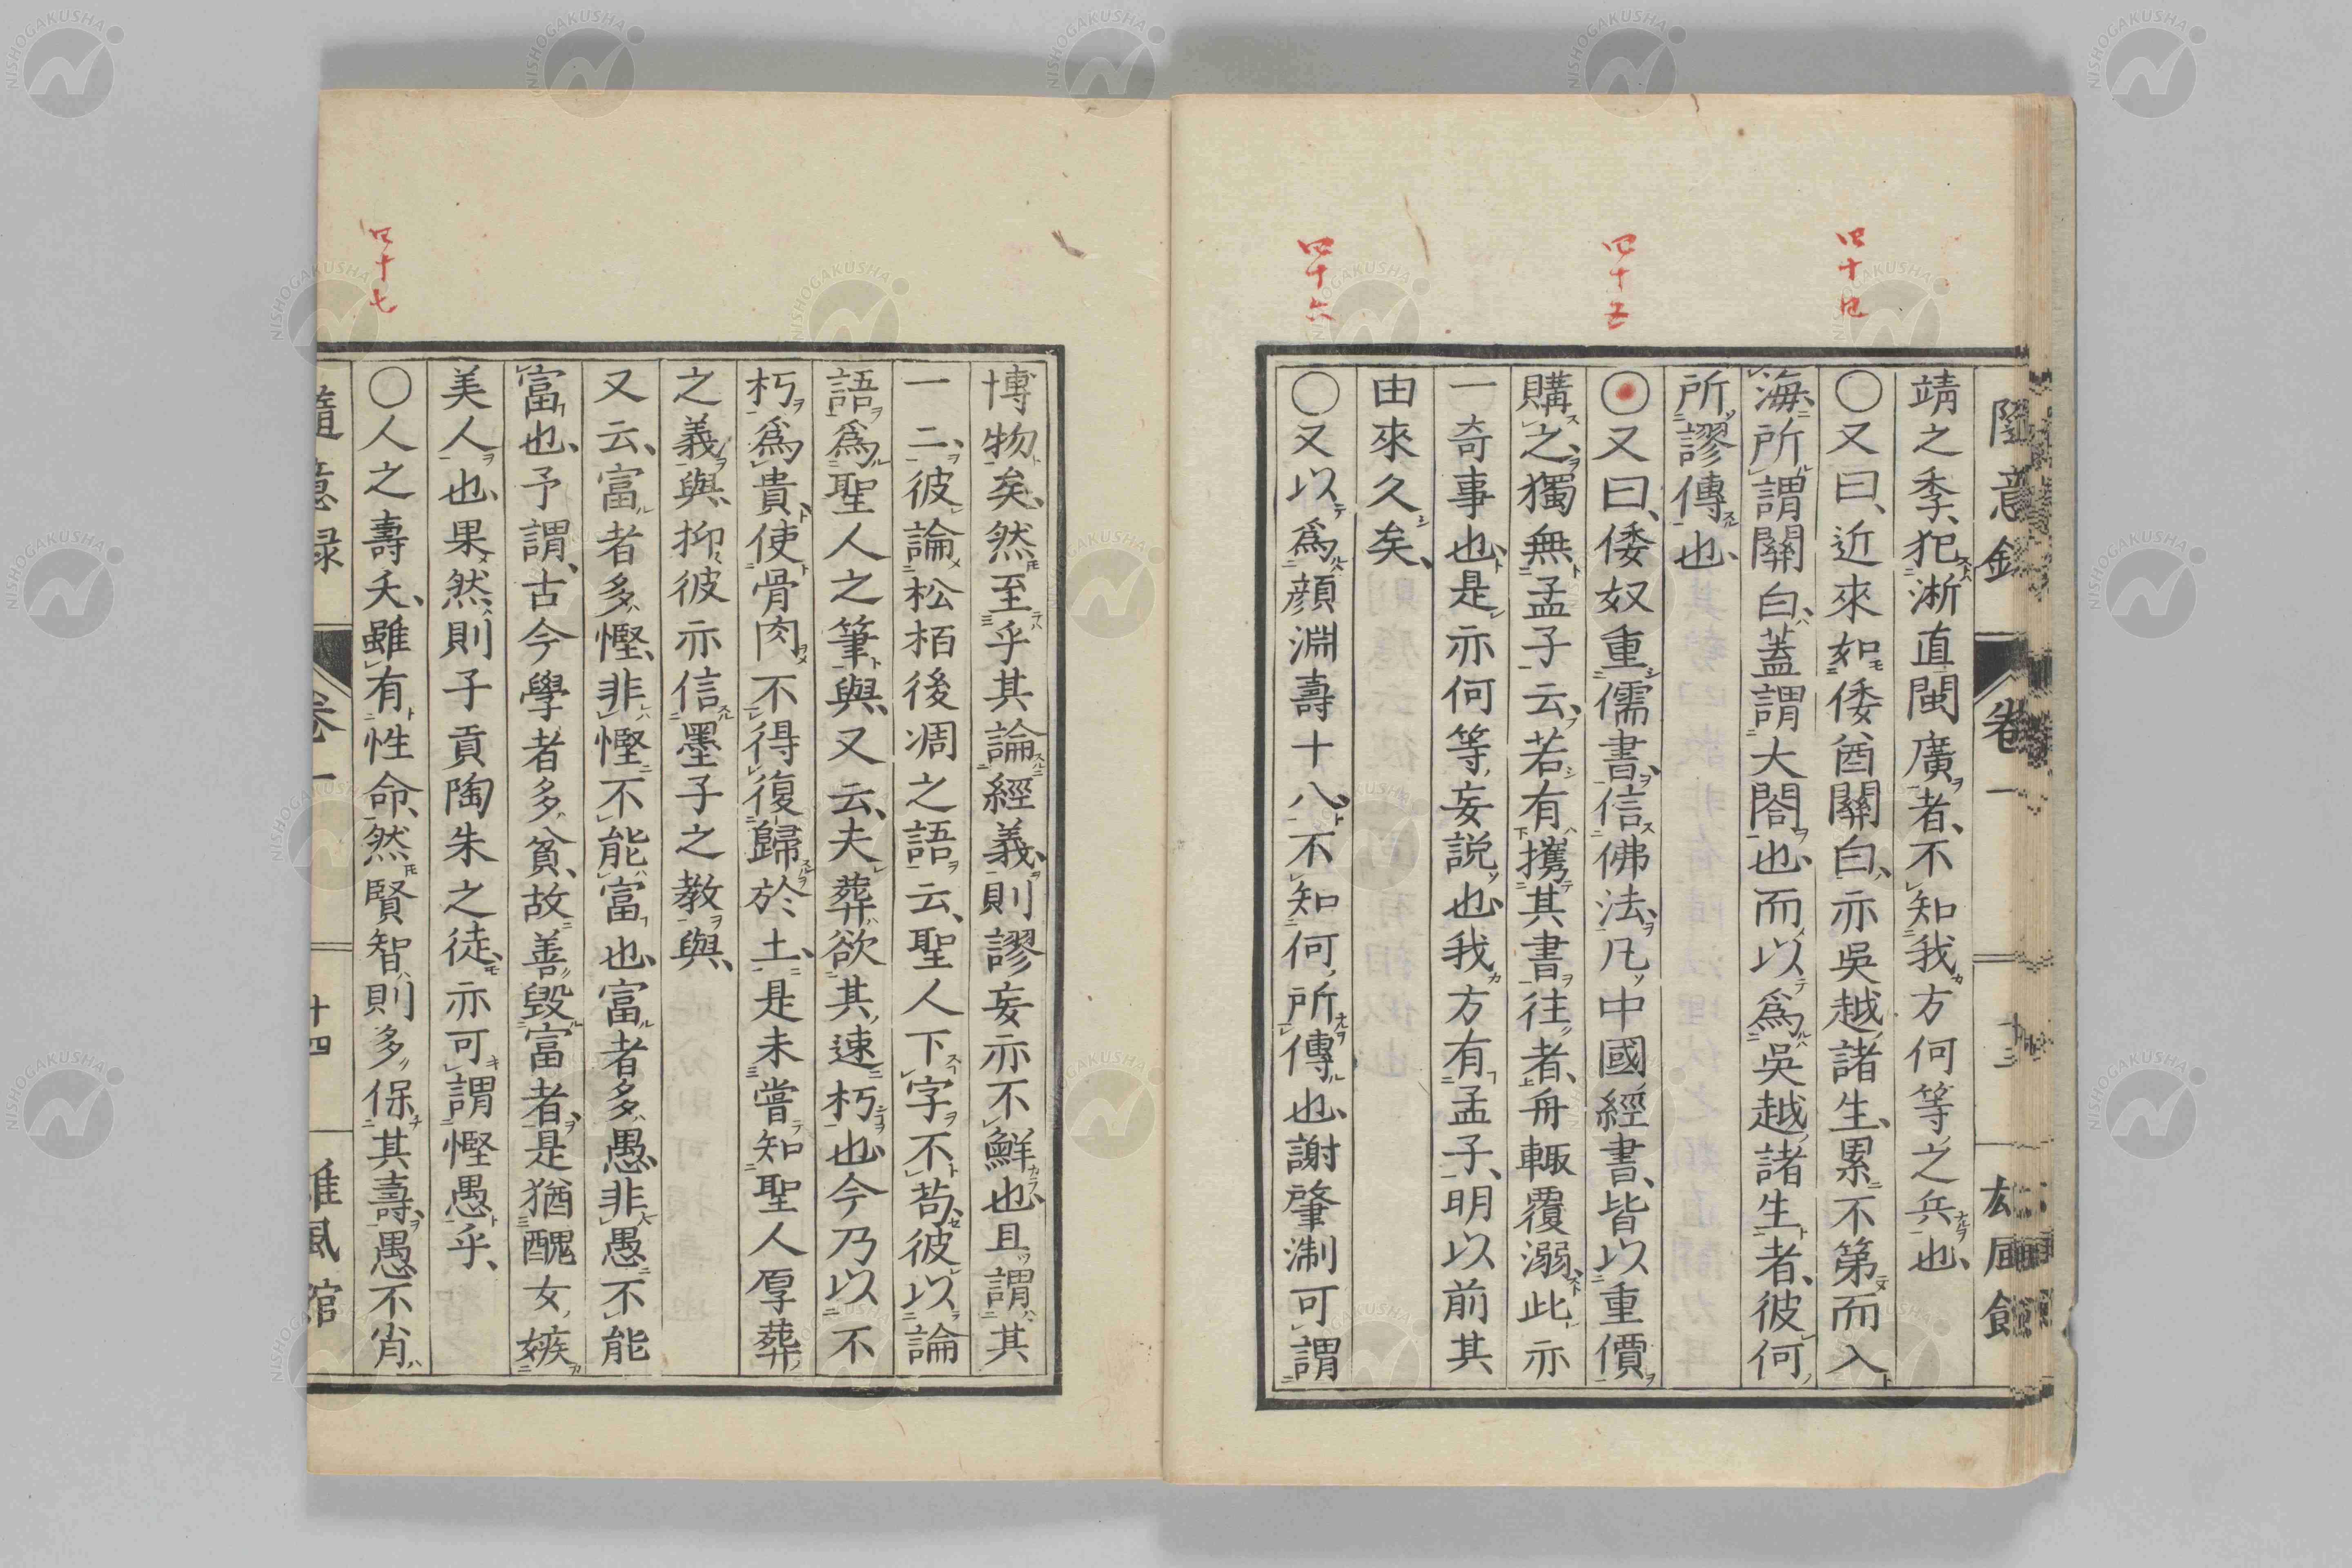 四十四
四十五
四十六
靖之季、犯淅直閩廣者、不知我方何等之兵也、
〇又曰、近來如倭酋關白、亦吳越諸生、累不第而入
海、所謂關白、蓋謂大閤也、而以爲吳越諸生者、彼何
所謬傳也、
〇又曰、倭奴重儒書、信佛法、凡中國經書、皆以重價
購之、獨無孟子、云、若有攜其書往者、舟輙覆溺、此亦
一奇事也、是亦何等妄説也、我方有孟子、明以前其
由來久矣、
〇又以爲顏淵壽十八、不知何所傳也、謝肇淛可謂
四十七
博物矣、然至乎其論經義、則謬妄亦不鮮也、且謂其
一二、彼論松栢後凋之語云、聖人下字不苟、彼以論
語爲聖人之筆與、又云、夫葬欲其速朽也、今乃以不
朽爲貴、使骨肉不得復歸於土、是未嘗知聖人厚葬
之義與、抑彼亦信墨子之教與、
又云、富者多慳、非慳不能富也、富者多愚、非愚不能
富也、予謂、古今學者多貧、故善毀富者、是猶醜女嫉
美人也、果然則子貢陶朱之徒、亦可謂慳愚乎、
〇人之壽夭、雖有性命、然賢智則多保其壽、愚不肖
隨意録 卷一 十四 雄風館